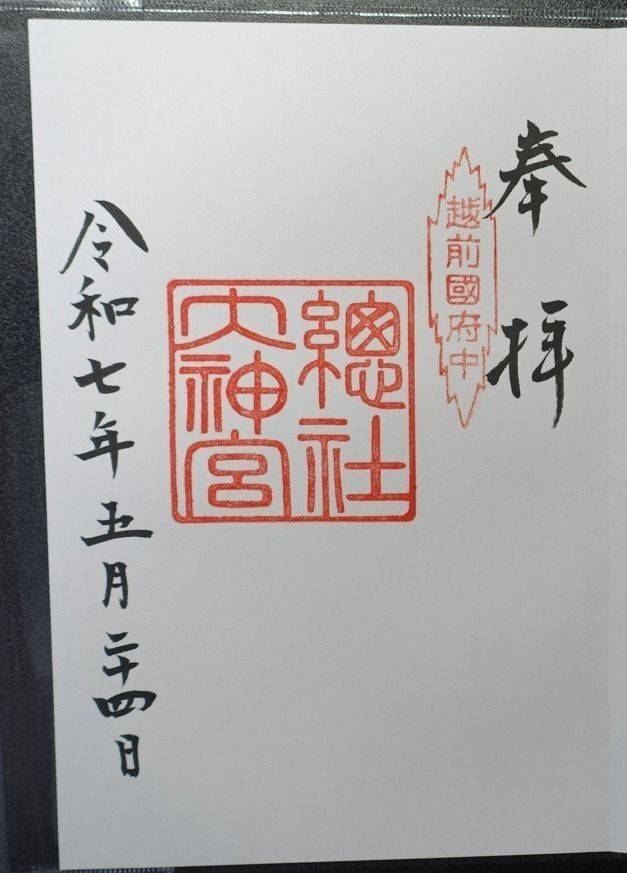 奉拝
越前國府中
總社
大神宮
令和七年五月二十四日